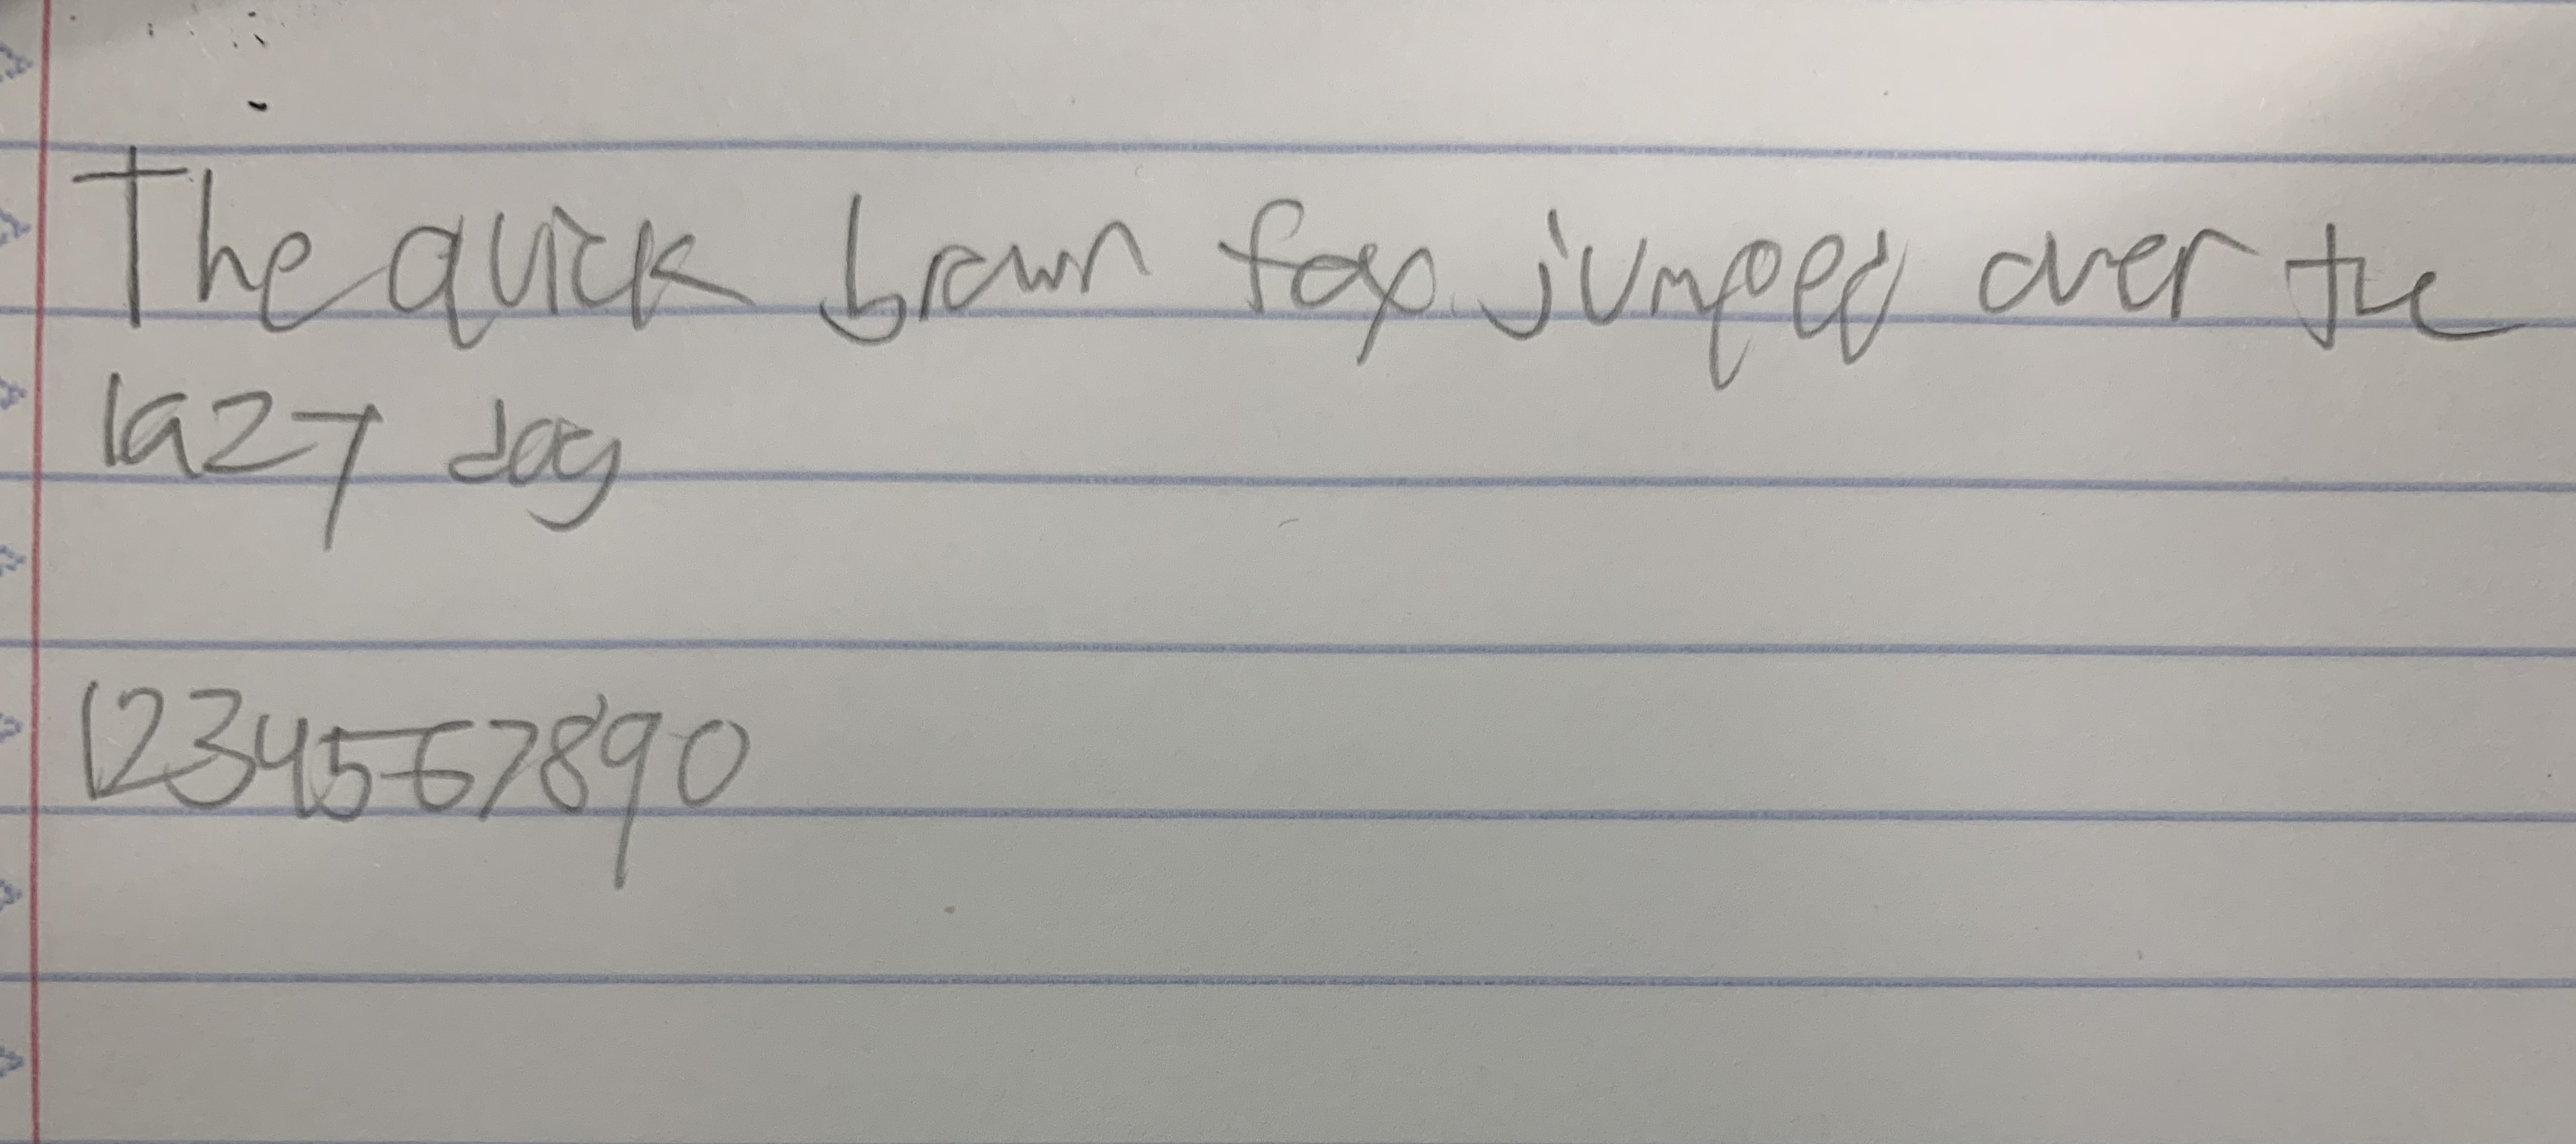 The quick brown fox jumped over the
lazy dog
1234567890